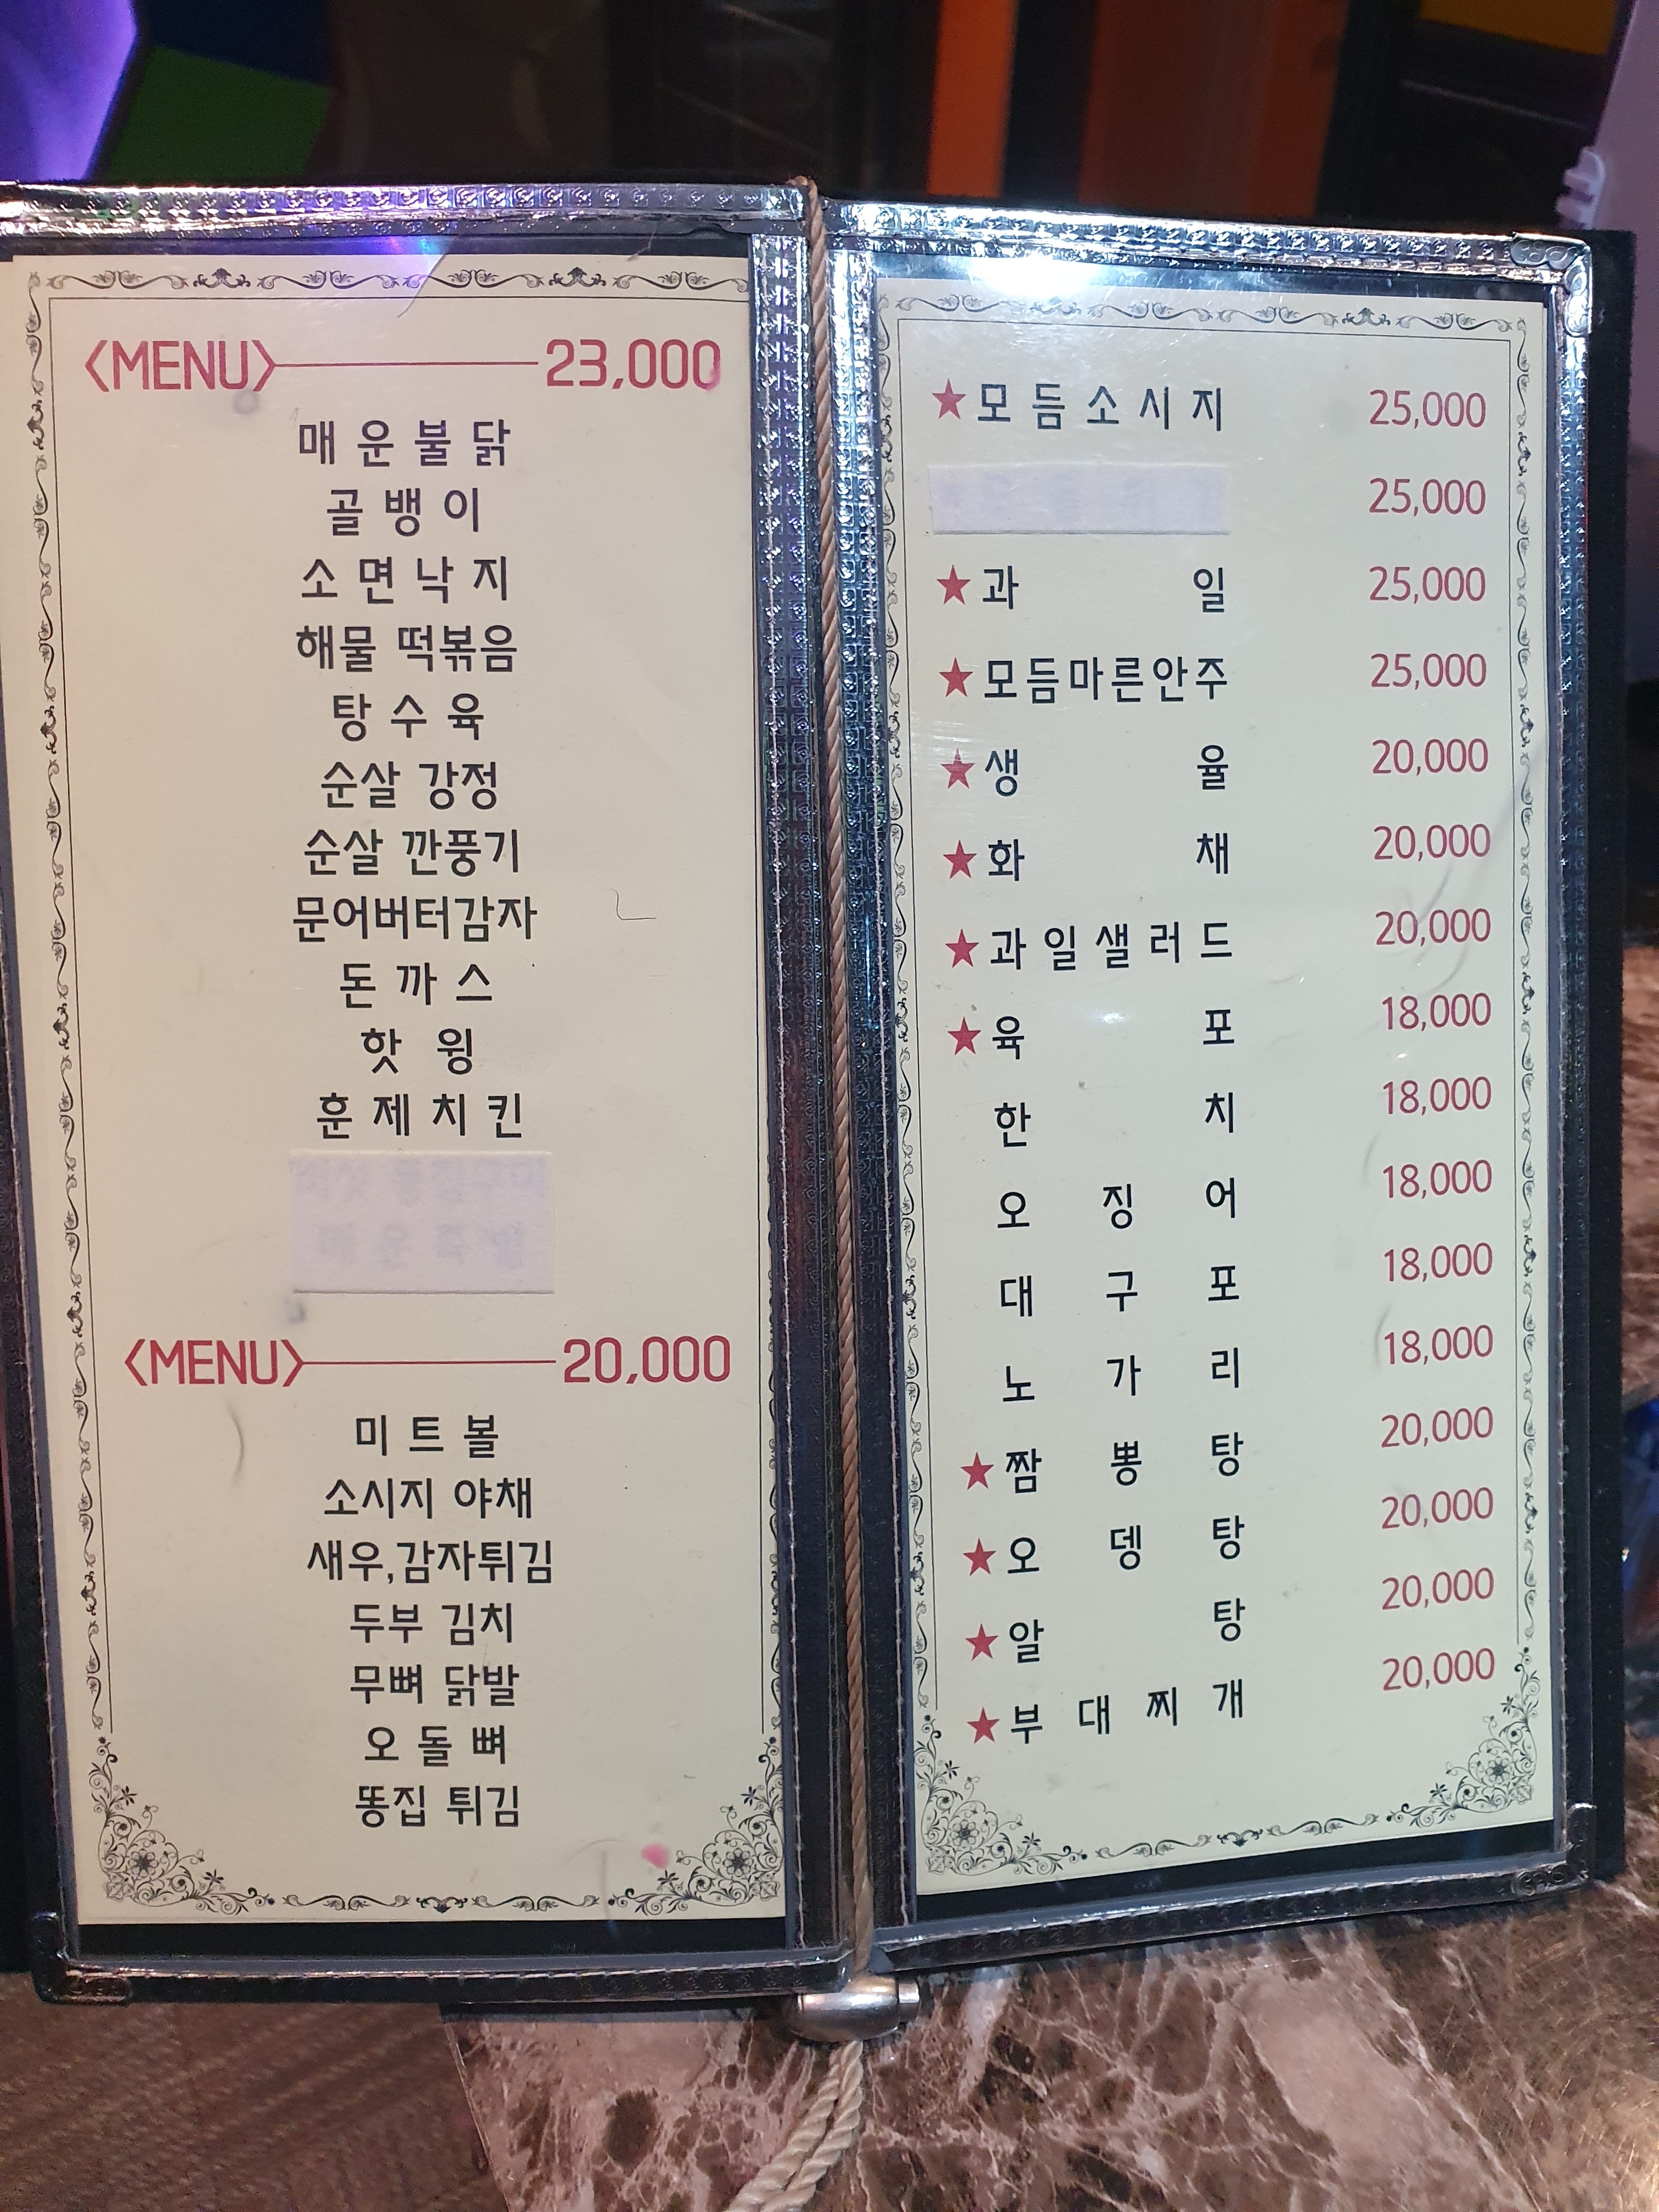 <MENU> 23,000
매운불닭
골뱅이
소면낙지
해물 떡볶음
탕수육
순살 강정
순살 깐풍기
문어버터감자
돈까스
핫 윙
훈제치킨
<MENU> 20,000
미트볼
소시지 야채
새우,감자튀김
두부 김치
무뼈 닭발
오돌뼈
똥집 튀김
★모듬소시지 25,000
25,000
★과일 25,000
★모듬마른안주 25,000
★생율 20,000
★화채 20,000
★과일샐러드 20,000
★육포 18,000
한치 18,000
오징어 18,000
대구포 18,000
노가리 18,000
★짬뽕탕 20,000
★오뎅탕 20,000
★알탕 20,000
★부대찌개 20,000